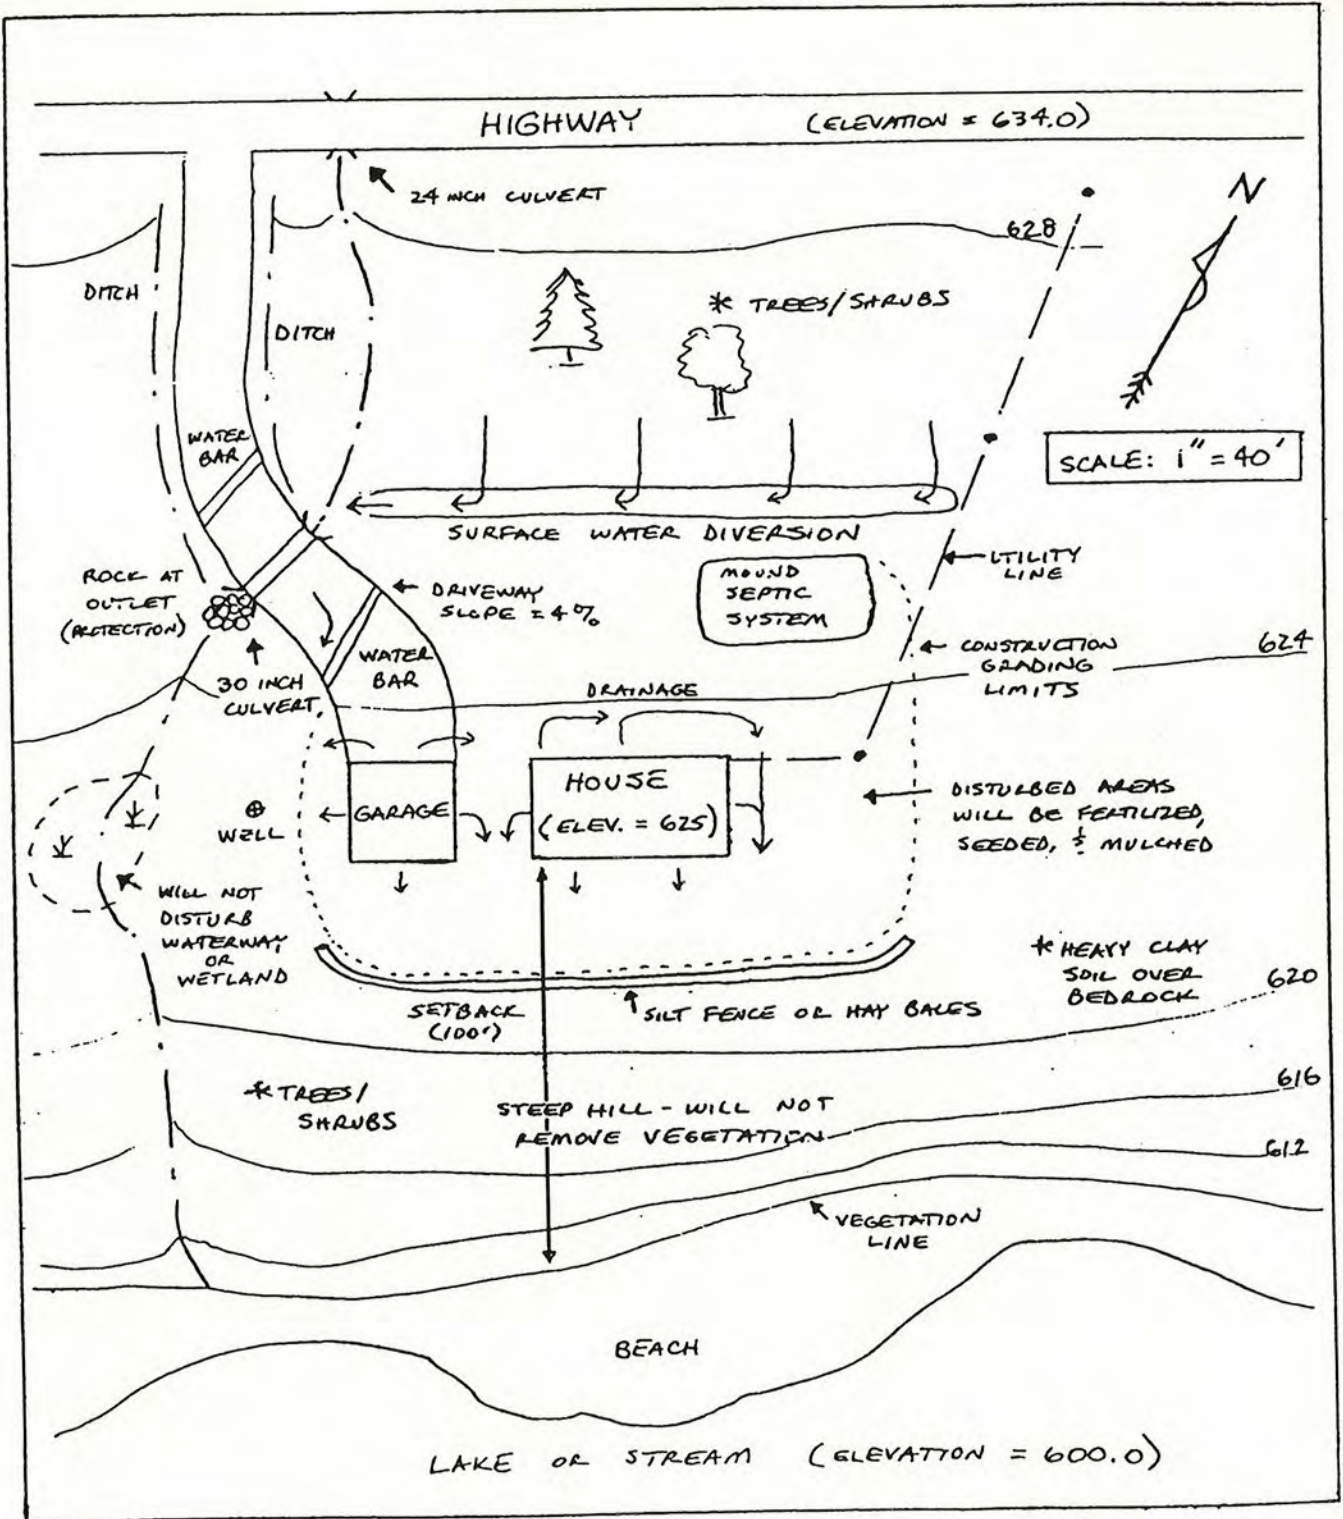 HIGHWAY (ELEVATION = 634.0)
24 INCH CULVERT
N
628
DITCH
* TREES/SHRUBS
DITCH
WATER
BAR
SCALE: 1" = 40'
SURFACE WATER DIVERSION
UTILITY
LINE
MOUND
SEPTIC
SYSTEM
ROCK AT
OUTLET
(PROTECTION)
DRIVEWAY
SLOPE = 4%
CONSTRUCTION
GRADING
LIMITS
624
WATER
BAR
30 INCH
CULVERT
DRAINAGE
HOUSE
(ELEV. = 625)
GARAGE
WELL
DISTURBED AREAS
WILL BE FERTILIZED,
SEEDED, & MULCHED
WILL NOT
DISTURB
WATERWAY
OR
WETLAND
* HEAVY CLAY
SOIL OVER
BEDROCK
620
SETBACK
(100')
SILT FENCE OR HAY BALES
616
* TREES/
SHRUBS
STEEP HILL - WILL NOT
REMOVE VEGETATION
612
VEGETATION
LINE
BEACH
LAKE OR STREAM (ELEVATION = 600.0)